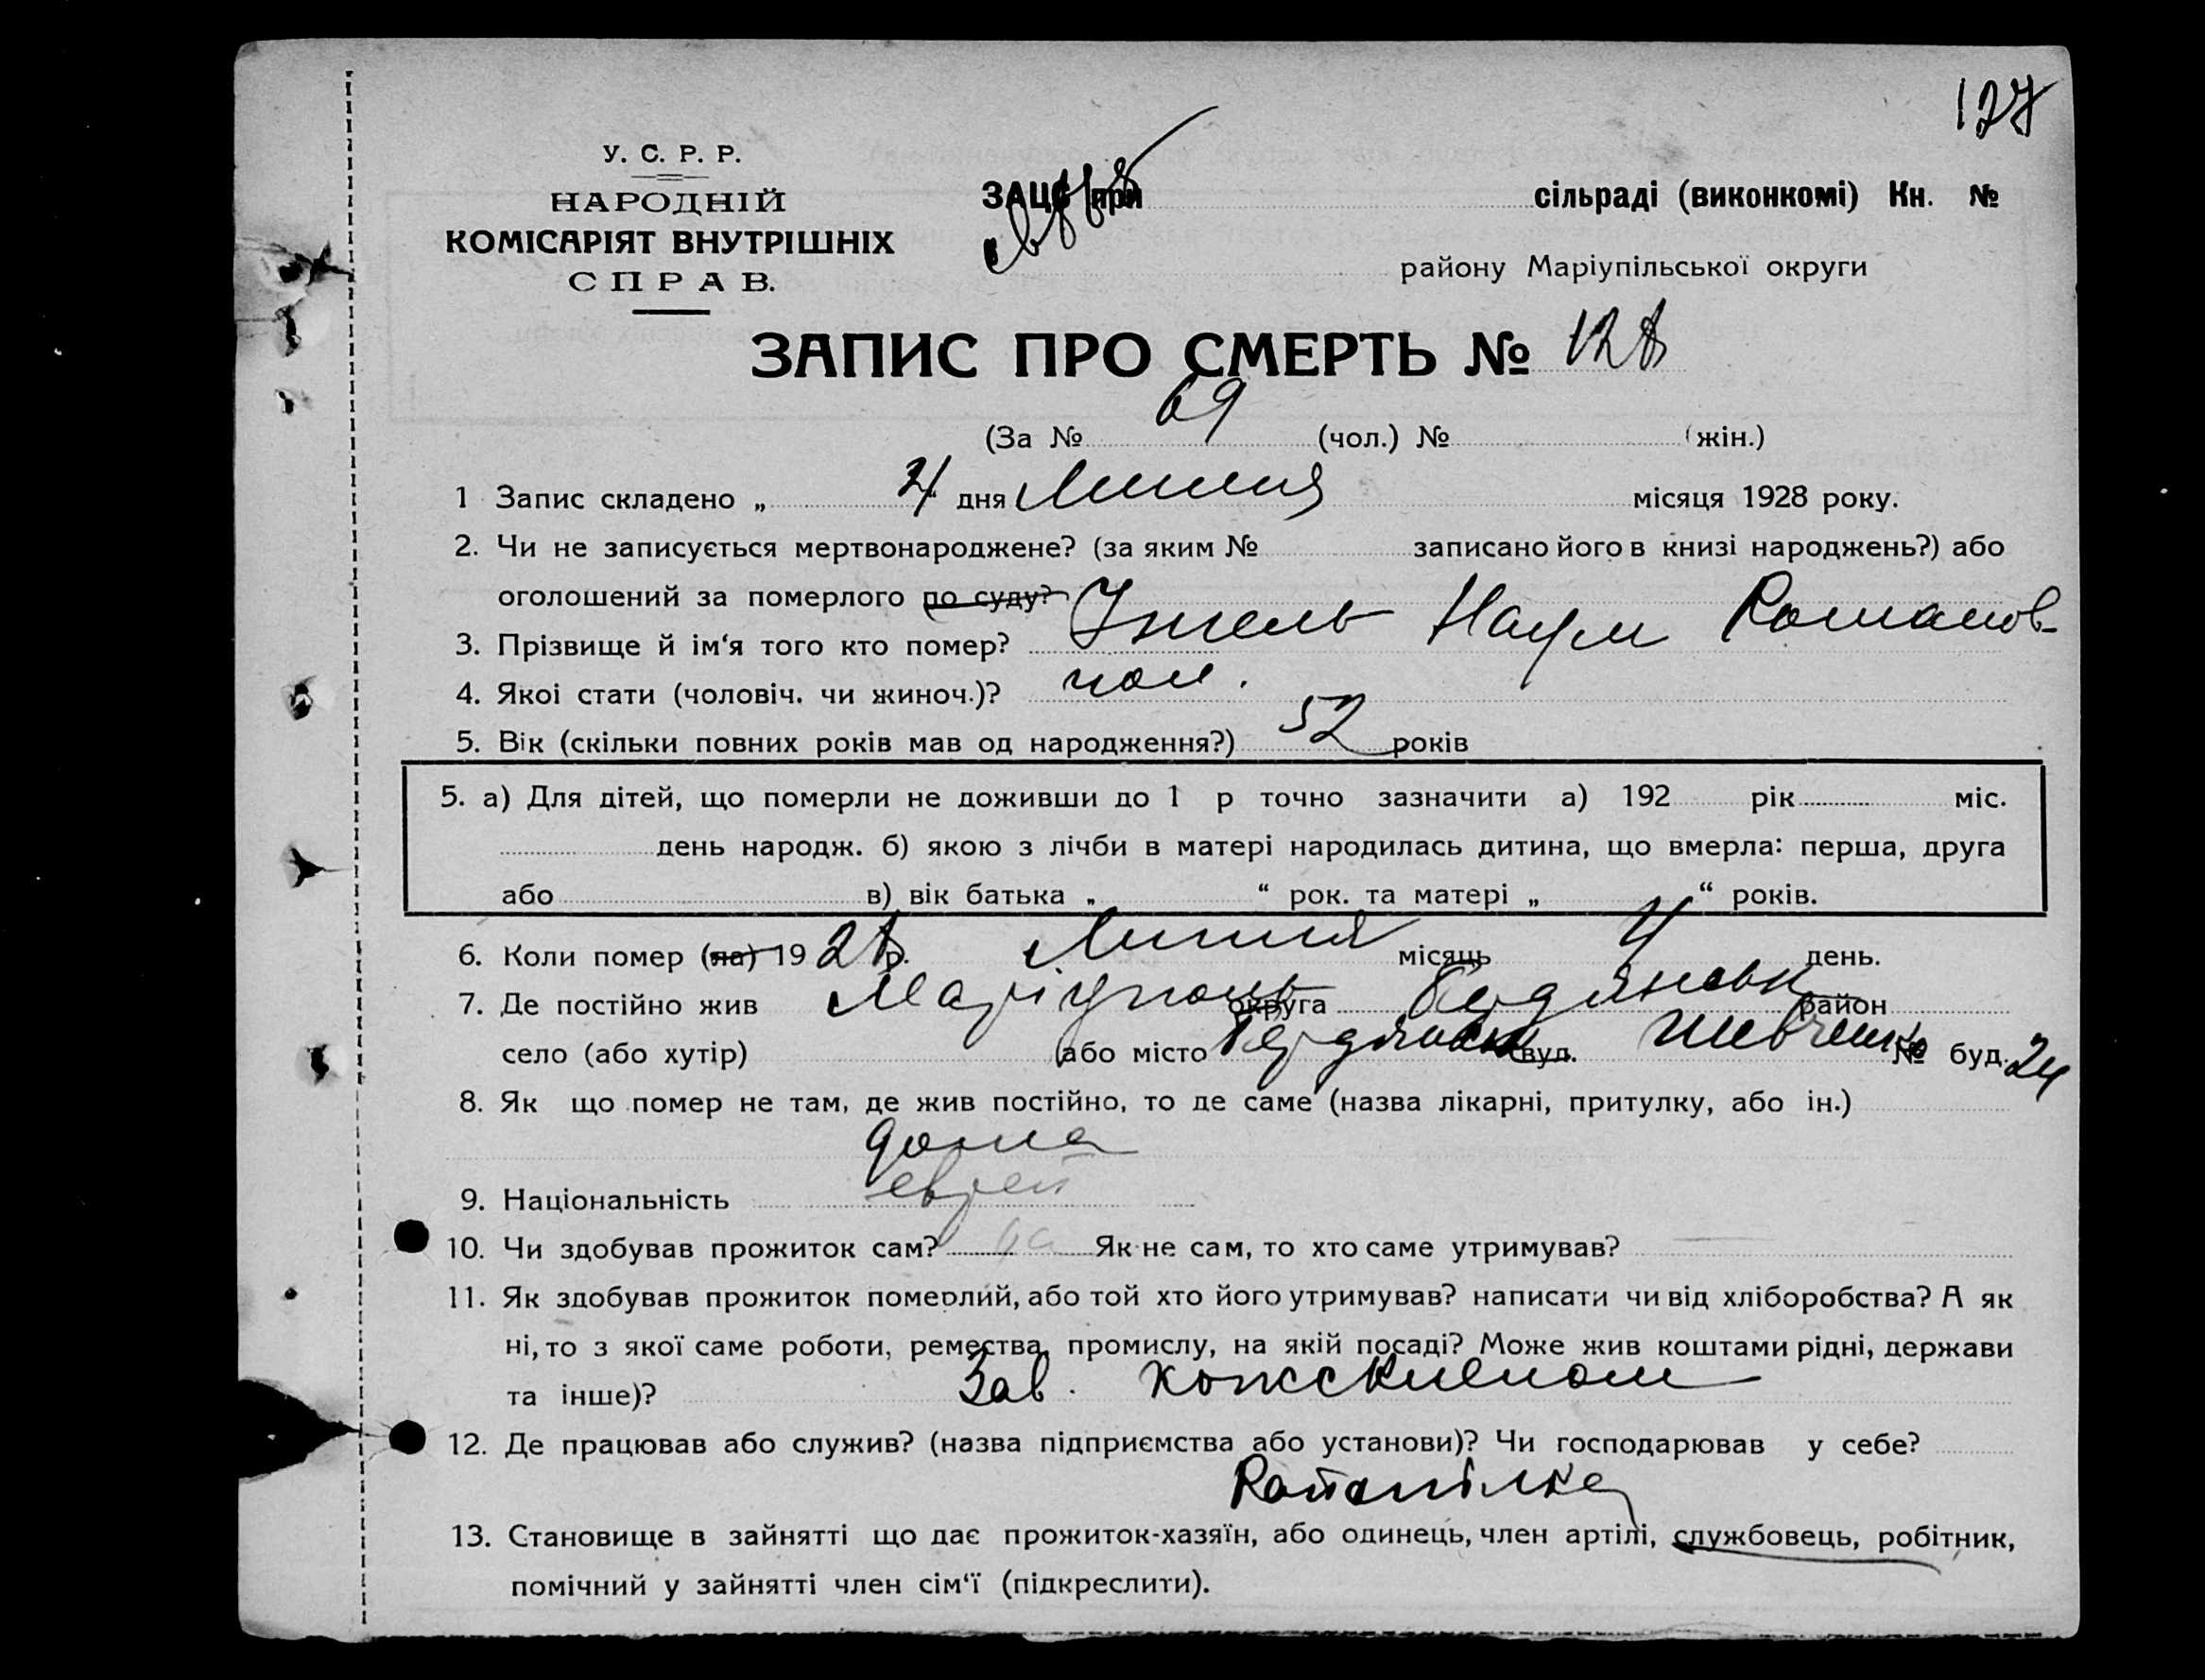 127
У. С. Р. Р.
НАРОДНІЙ
КОМІСАРІЯТ ВНУТРІШНІХ
СПРАВ.
ЗАЦС при сільраді (виконкомі) Кн. №
району Маріупільської округи
ЗАПИС ПРО СМЕРТЬ № 128
(За № 69 (чол.) № (жін.)
1 Запис складено „ 4 дня Липня місяця 1928 року.
2. Чи не записується мертвонароджене? (за яким № записано його в книзі народжень?) або
оголошений за померлого по суду?
3. Прізвище й ім‘я того кто помер? Наум Романов-
4. Якоі стати (чоловіч. чи жиноч.)? чол.
5. Вік (скільки повних років мав од народження?) 52 років
5. а) Для дітей, що померли не доживши до 1 р точно зазначити а) 192 рік міс.
день народж. б) якою з лічби в матері народилась дитина, що вмерла: перша, друга
або в) вік батька „ “ рок. та матері „ “ років.
6. Коли помер (ла) 1928 р. Липня місяць 4 день.
7. Де постійно жив Маріуполь округа Бердянськ район
село (або хутір) (або місто Бердянськ вул. Шевченко № буд. 24
8. Як що помер не там, де жив постійно, то де саме (назва лікарні, притулку, або ін.)
дома
9. Національність еврей
10. Чи здобував прожиток сам? Як не сам, то хто саме утримував?
11. Як здобував прожиток померлий, або той хто його утримував? написати чи від хліборобства? А як
ні, то з якої саме роботи, ремества, промислу, на якій посаді? Може жив коштами рідні, держави
та інше)? Зав.
12. Де працював або служив? (назва підприємства або установи)? Чи господарював у себе?
13. Становище в зайнятті що дає прожиток-хазяїн, або одинець, член артілі, службовець, робітник,
помічний у зайнятті член сім‘ї (підкреслити).